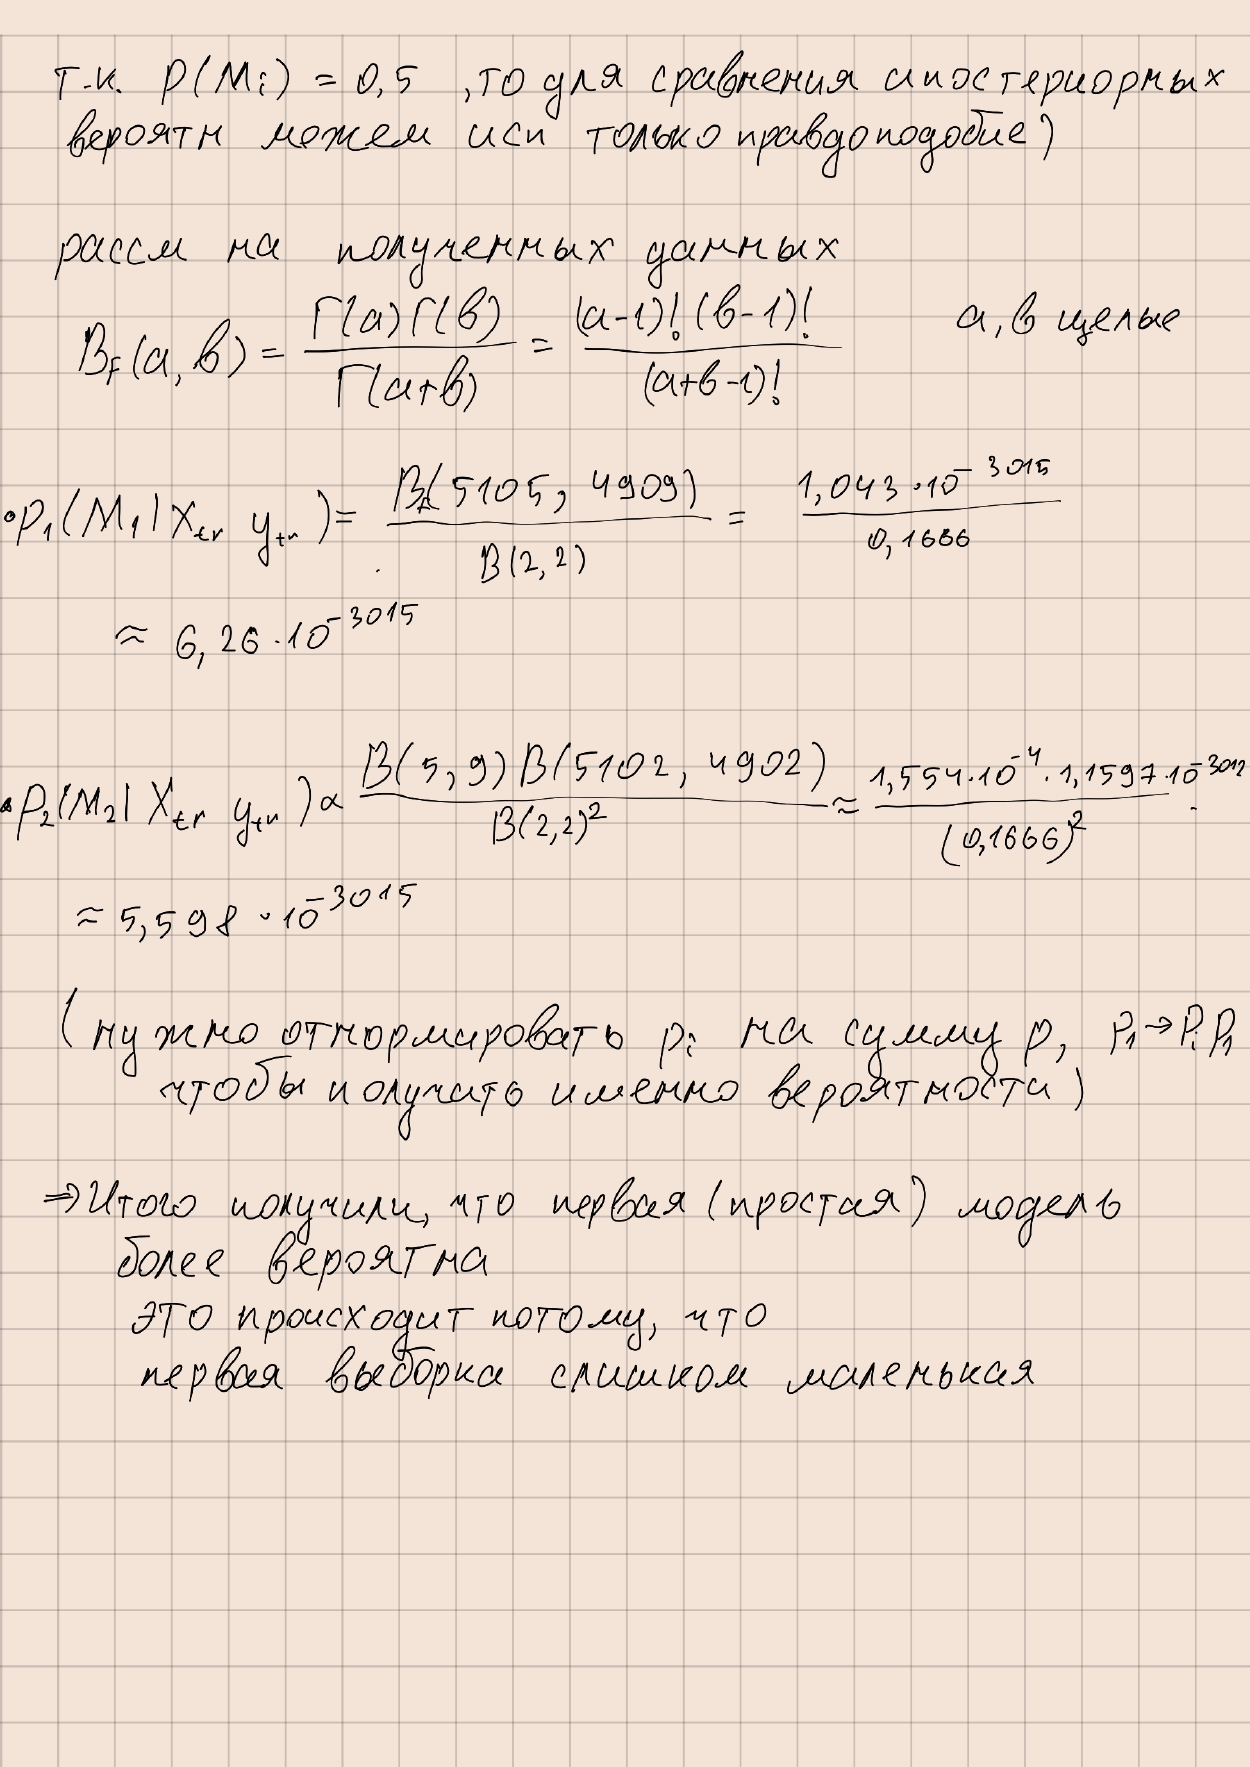 т.к. P(Mi) = 0,5 , то для сравнения апостериорных
вероятн можем исп только правдоподобие)
рассм на полученных данных
B_F(a, b) = Γ(a)Γ(b) / Γ(a+b) = (a-1)! (b-1)! / (a+b-1)! a, b целые
• P₁(M₁ | X_tr y_tr) = B(5105, 4909) / B(2,2) = 1,043·10^-3015 / 0,1666
≈ 6,26·10^-3015
• P₂(M₂ | X_tr y_tr) ∝ B(5,9) B(5102, 4902) / B(2,2)² ≈ 1,554·10^-4 · 1,1597·10^-3012 / (0,1666)²
≈ 5,598 · 10^-3015
(нужно отнормировать pᵢ на сумму p, P₁→PᵢP₁
чтобы получить именно вероятности)
⇒ Итого получили, что первая (простая) модель
более вероятна
это происходит потому, что
первая выборка слишком маленькая